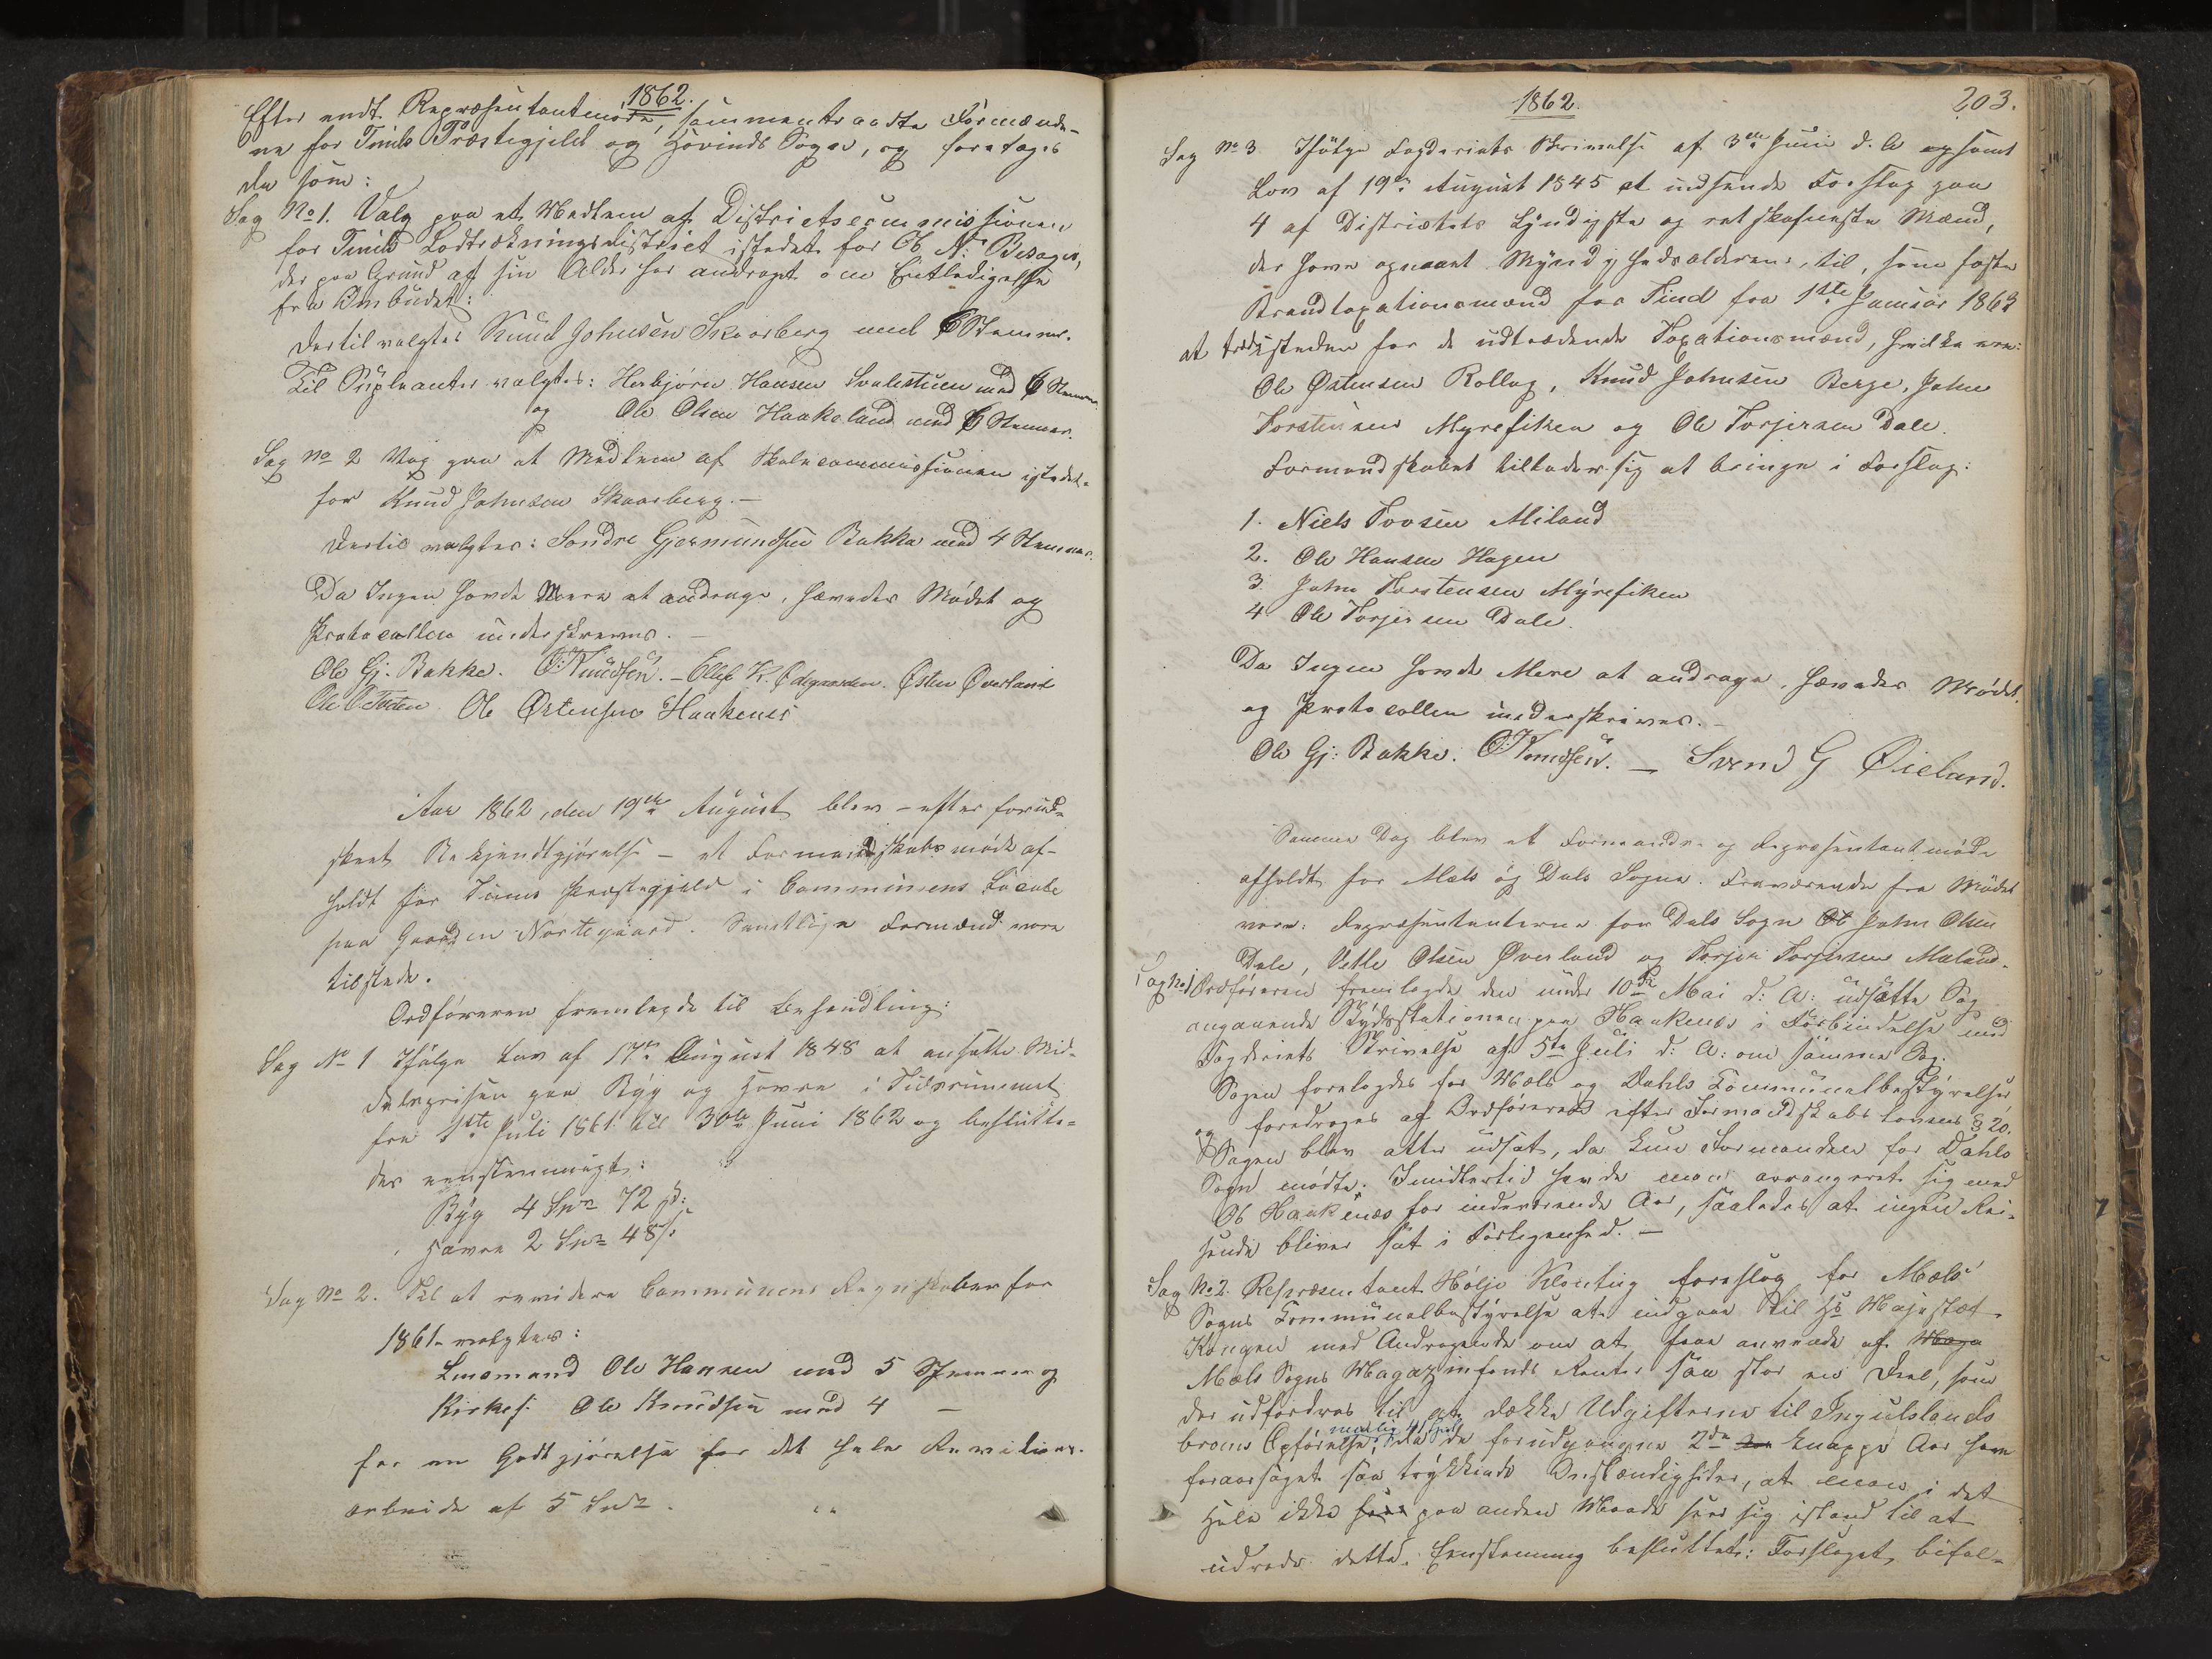 1862.
Efter endt Repræsentantmøde, sammentraadte Formænde-
ne for Tinds Præstegjeld og Hovinds Sogn, og foretoges
da som:
Sag No 1. Valg paa et Medlem af Districtscommissionen
for Tinds Lodtrækningsdistrict istedet for Ol. N. Besager,
der paa Grund af sin Alder har andraget om Entledigelse
fra Ombudet:
Dertil valgtes Knud Johnsen Skaarberg med 6 Stemmer.
Til Supleanter valgtes: Herbjørn Hansen Svalestuen med 6 Stemmer
og Ole Olsen Haakaland med 6 Stemmer.
Sag No 2 Valg paa et Medlem af Skolecommissionen istedet-
for Knud Johnsen Skaarberg. —
Dertil valgtes: Sondre Gjermundsen Bakka med 4 Stemmer.
Da Ingen havde Mere at andrage, hævedes Mødet og
Protocollen underskreves. —
Ole Gj. Bakke. O. Knudsen. — Ellef K. Ødegaarden. Østen Øverland
Ole O Tveten Ole Østensen Haakenes
Aar 1862, den 19de August blev – efter forud-
skeet Bekjendtgjørelse – et Formandskabsmøde af-
holdt for Tinns Præstegjeld i Communens Locale
paa Gaarden Nortegaard. Samtlige Formænd vare
tilstede.
Ordføreren fremlagde til Behandling:
Sag No 1 Ifølge Lov af 17de August 1848 at ansætte Mid-
delsprisen paa Byg og Havre i Tidsrummet
fra 1ste Juli 1861 til 30te Juni 1862 og beslutte-
des eenstemmigt:
Byg 4 Spd 72 ß:
Havre 2 Spd 48 ß
Sag No 2. Til at revidere Communens Regnskaber for
1861 valgtes:
Lensmand Ole Hansen med 5 Stemmer og
Kirkes. Ole Knudsen med 4 —
for en Godtgjørelse for det hele Revisions-
arbeide af 5 Spd.
1862. 203.
Sag No 3. Ifølge Fogderiets Skrivelse af 3die Juni d. A. samt
Lov af 19de August 1845 at indsende Forslag paa
4 af Districtets kyndigste og retskafneste Mænd,
der have opnaaet Myndighedsalderen, til, som faste
Brandtaxationsmænd for Tind fra 1ste Januar 1863
at træde isteden for de udtrædende Taxationsmænd, hvilke ere:
Ole Østensen Rollag, Knud Johnsen Berge, John
Torstensen Myrefiken og Ole Torjersen Dale.
Formandskabet tillader sig at bringe i Forslag:
1. Niels Tovsen Miland
2. Ole Hansen Hagen
3. John Torstensen Myrefiken
4. Ole Torjersen Dale.
Da Ingen havde Mere at andrage, hævedes Mødet
og Protocollen underskreves. —
Ole Gj: Bakke. O. Knudsen. — Svend G Øieland.
Samme Dag blev et Formands- og Repræsentantmøde
afholdt for Mæls og Dals Sogne. Fraværende fra Mødet
vare: Repræsentanterne for Dals Sogn John Olsen
Dale, Vetle Olsen Øverland og Torjer Torjersen Mæland.
Sag No 1 Ordføreren fremlagde den under 10de Mai d: A: udsatte Sag
angaaende Skydsstationen paa Haakenæs i Forbindelse med
Fogderiets Skrivelse af 5te Juli d: A: om samme Sag.
Sagen forelagdes for Mæls og Dahls Communalbestyrelser
og foredroges af Ordføreren efter Formandskabslovens § 20.
Sagen blev atter udsat, da kun Formanden for Dahls
Sogn mødte. Imidlertid havde man arrangeret sig med
Ole Haakenæs for indeværende Aar, saaledes at ingen Rei-
sende bliver sat i Forlegenhed. —
Sag No 2. Repræsentant Hølje Klonteig foreslog for Mæls
Sogns Communalbestyrelse at indgaae til Hs Majestæt
Kongen med Andragende om at faae anvendt af Maga
Mæls Sogns Magazinfonds Renter saa stor en Deel, som
der udfordres til at dække Udgifterne til Ingulslands
broens Opførelse, nemlig 41 Spd, da de forudgangne 2de knappe Aar have
foraarsaget saa trykkende Omstændigheder, at man i det
Hele ikke paa anden Maade seer sig istand til at
udrede dette. Eenstemmig besluttet: Forslaget bifal-